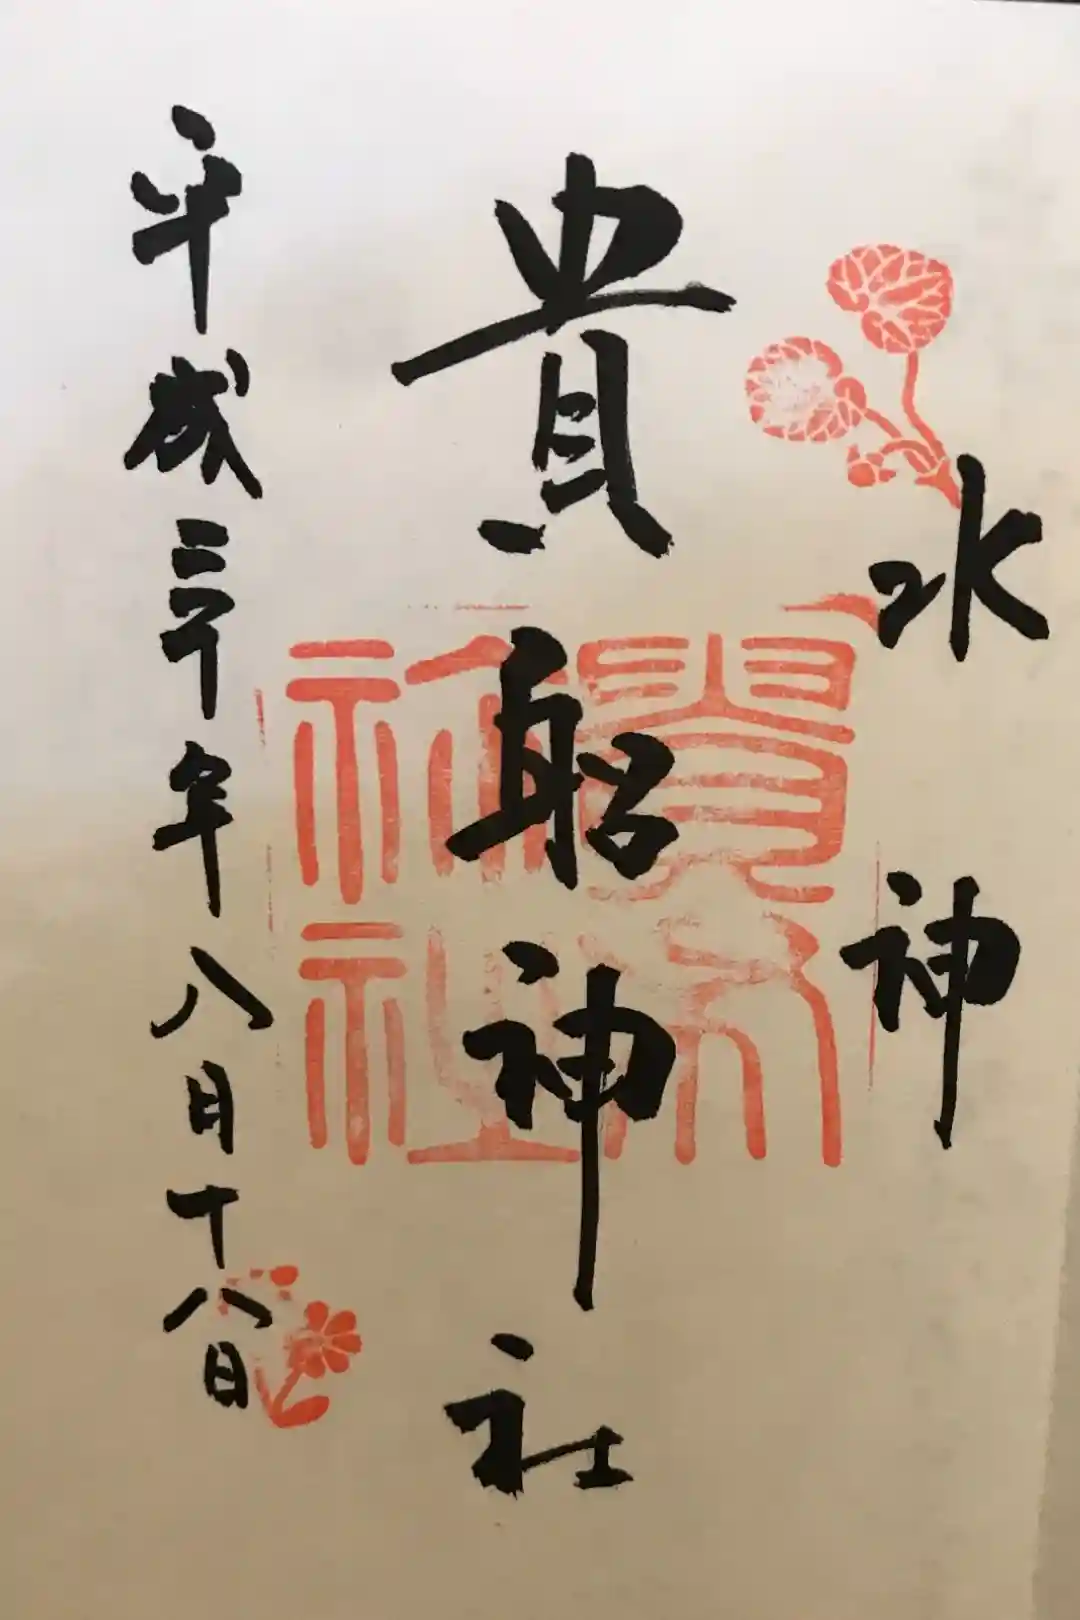 水神
貴船神社
貴布祢社
平成三十年八月十八日